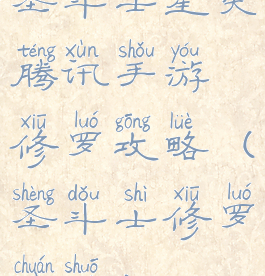 圣斗士星矢
téng xùn shǒu yóu
腾讯手游
xiū luó gōng lüè
修罗攻略（
shèng dǒu shì xiū luó
圣斗士修罗
chuán shuō